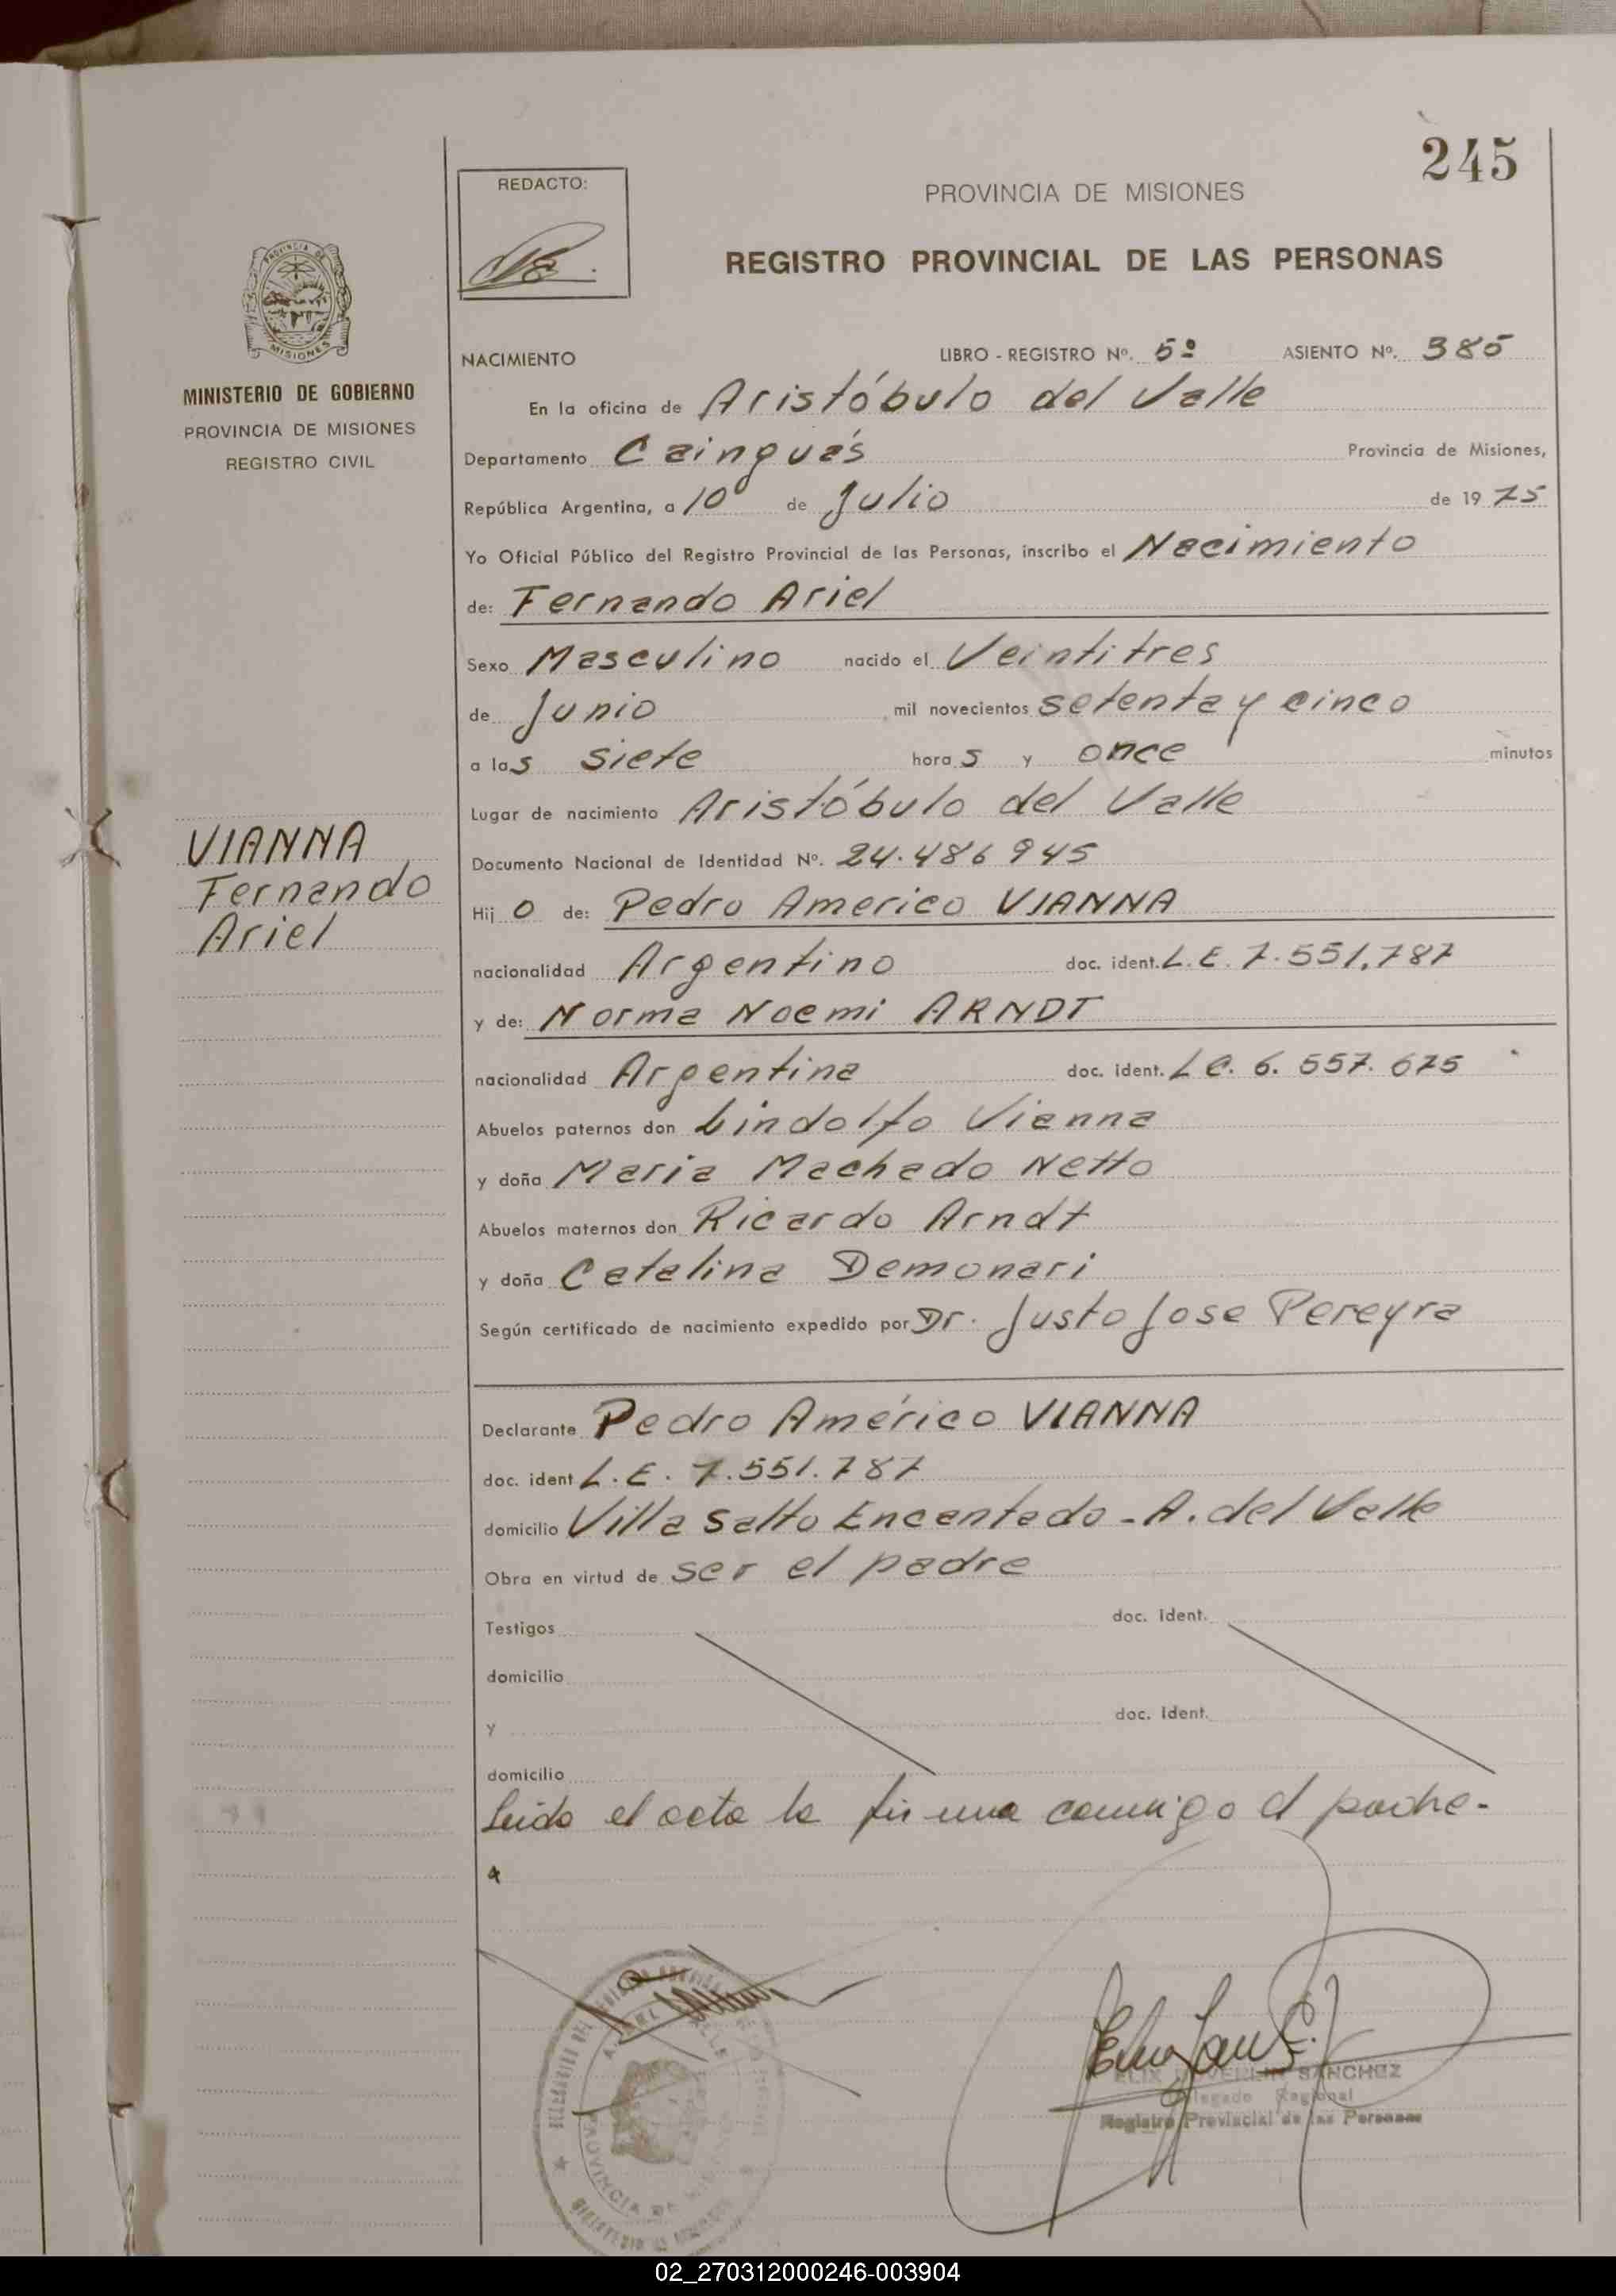 245
REDACTO:
PROVINCIA DE MISIONES
REGISTRO PROVINCIAL DE LAS PERSONAS
MISIONES
MINISTERIO DE GOBIERNO
PROVINCIA DE MISIONES
REGISTRO CIVIL
NACIMIENTO LIBRO - REGISTRO Nº. 5º ASIENTO Nº. 385
En la oficina de Aristóbulo del Valle
Departamento Cainguás Provincia de Misiones,
República Argentina, a 10 de Julio de 1975
Yo Oficial Público del Registro Provincial de las Personas, inscribo el Nacimiento
de: Fernando Ariel
Sexo Masculino nacido el Veintitres
de Junio mil novecientos setenta y cinco
a las siete horas y once minutos
Lugar de nacimiento Aristóbulo del Valle
VIANNA
Fernando
Ariel
Documento Nacional de Identidad Nº. 24.486945
Hijo de: Pedro Americo VIANNA
nacionalidad Argentino doc. ident. L.E. 7.551.787
y de: Norma Noemi ARNDT
nacionalidad Argentina doc. ident. LC. 6.557.675
Abuelos paternos don Lindolfo Vianna
y doña Maria Machado Netto
Abuelos maternos don Ricardo Arndt
y doña Catalina Demonari
Según certificado de nacimiento expedido por Dr. Justo Jose Pereyra
Declarante Pedro Américo VIANNA
doc. ident L.E. 7.551.787
domicilio Villa Salto Encantado - A. del Valle
Obra en virtud de ser el padre
Testigos doc. ident.
domicilio
y doc. ident.
domicilio
Leida el acta la firma conmigo el padre-
SANCHEZ
Delegado Regional
Registro Provincial de las Personas
PROVINCIA DE
02_270312000246-003904